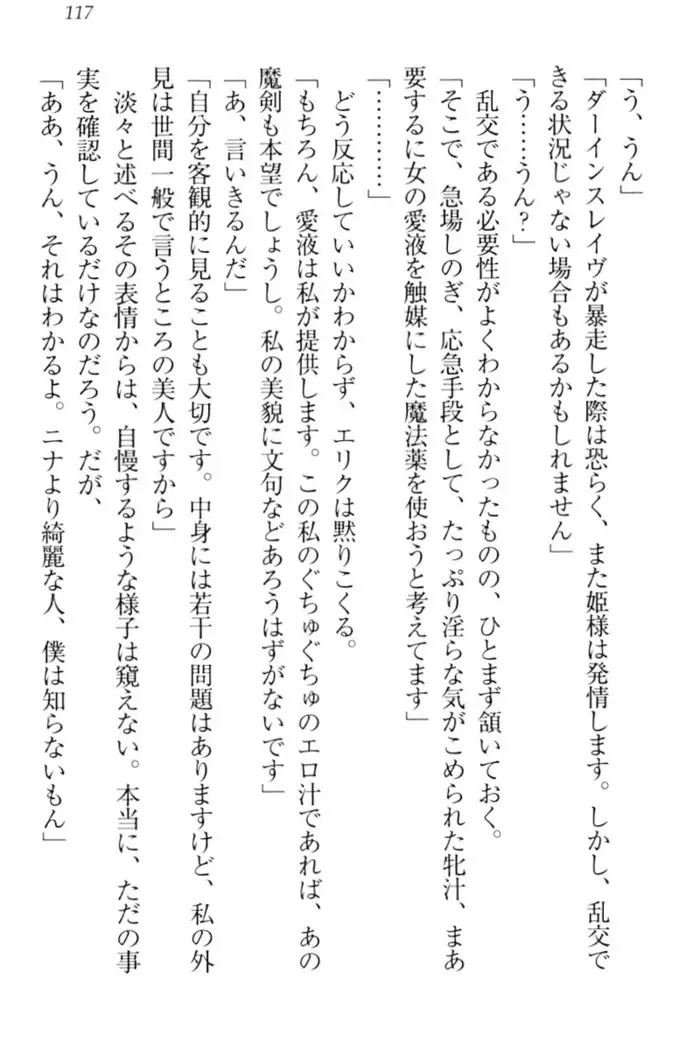 117
「う、うん」
「ダーインスレイヴが暴走した際は恐らく、また姫様は発情します。しかし、乱交で
きる状況じゃない場合もあるかもしれません」
「う……うん？」
乱交である必要性がよくわからなかったものの、ひとまず頷いておく。
「そこで、急場しのぎ、応急手段として、たっぷり淫らな気がこめられた牝汁、まあ
要するに女の愛液を触媒にした魔法薬を使おうと考えてます」
「…………」
どう反応していいかわからず、エリクは黙りこくる。
「もちろん、愛液は私が提供します。この私のぐちゅぐちゅのエロ汁であれば、あの
魔剣も本望でしょうし。私の美貌に文句などあろうはずがないです」
「あ、言いきるんだ」
「自分を客観的に見ることも大切です。中身には若干の問題はありますけど、私の外
見は世間一般で言うところの美人ですから」
淡々と述べるその表情からは、自慢するような様子は窺えない。本当に、ただの事
実を確認しているだけなのだろう。だが、
「ああ、うん、それはわかるよ。ニナより綺麗な人、僕は知らないもん」